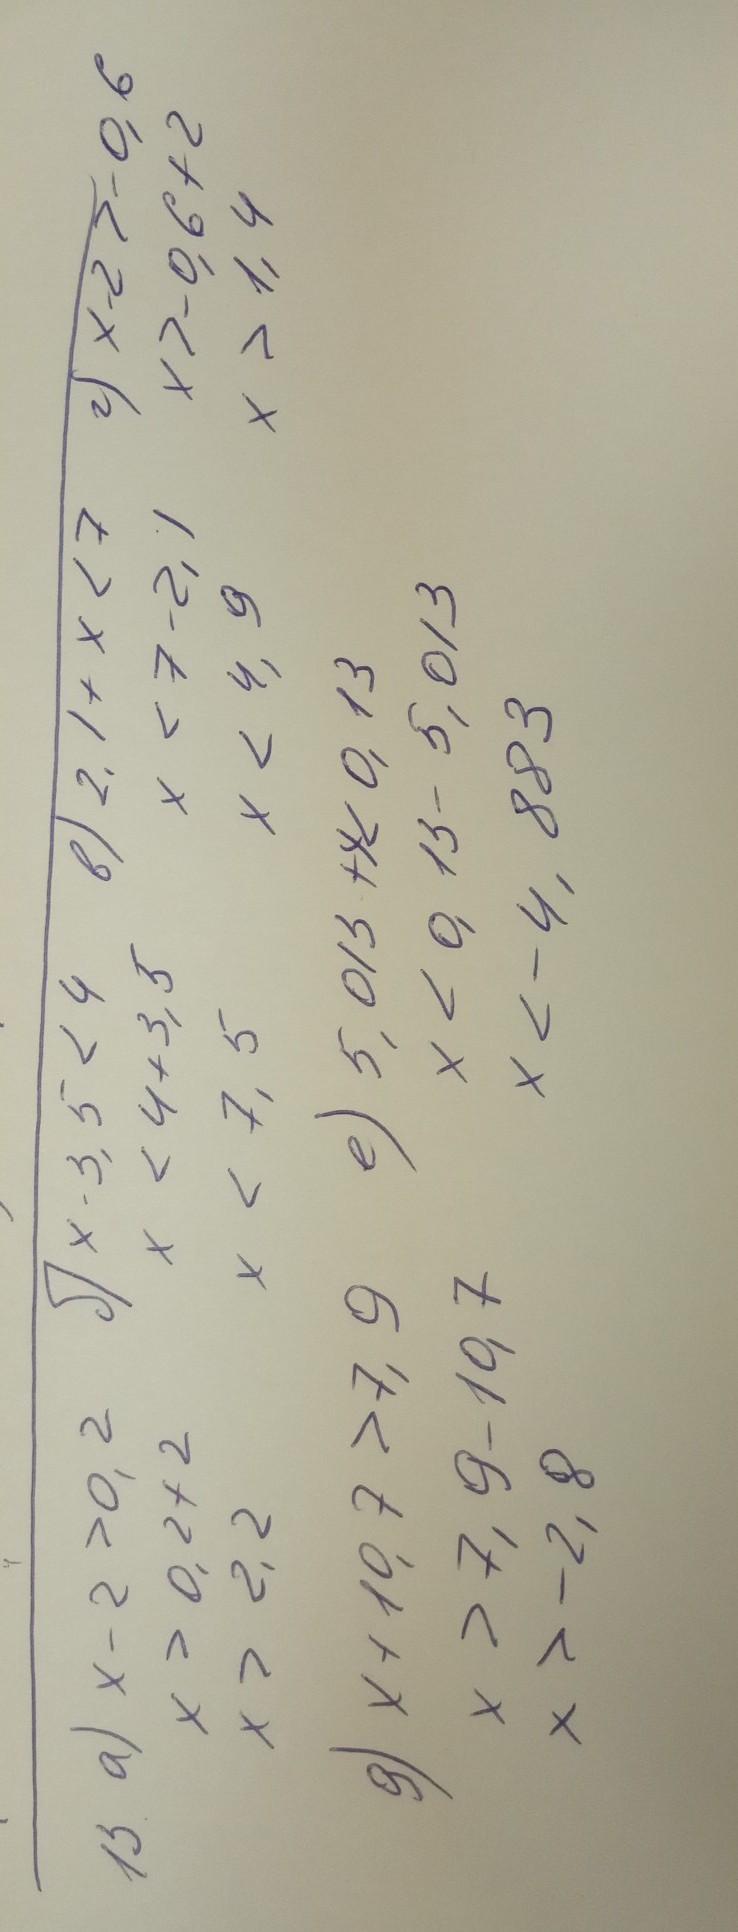 13 а) x - 2 > 0,2
x > 0,2+2
x > 2,2
б) x - 3,5 < 4
x < 4+3,5
x < 7,5
в) 2,1 + x < 7
x < 7 - 2,1
x < 4,9
г) x - 2 > -0,6
x > -0,6+2
x > 1,4
д) x + 10,7 > 7,9
x > 7,9 - 10,7
x > -2,8
е) 5,013 + x < 0,13
x < 0,13 - 5,013
x < -4,883